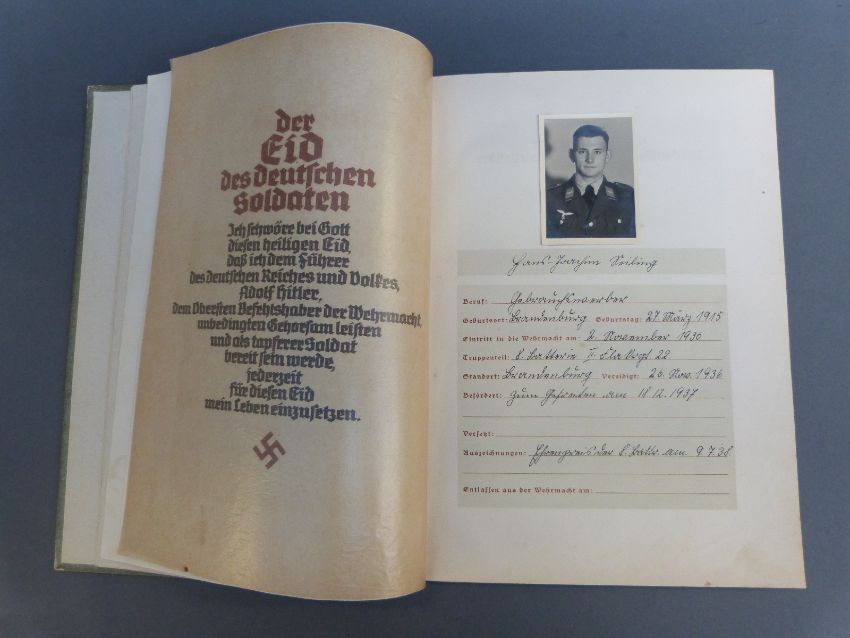 der
Eid
des deutschen
Soldaten
Ich schwöre bei Gott
diesen heiligen Eid,
daß ich dem Führer
des deutschen Reiches und Volkes,
Adolf Hitler,
dem Obersten Befehlshaber der Wehrmacht,
unbedingten Gehorsam leisten
und als tapferer Soldat
bereit sein werde,
jederzeit
für diesen Eid
mein Leben einzusetzen.
Hans-Joachim
Beruf: Gebrauchswerber
Geburtsort: Brandenburg Geburtstag: 27. März 1915
Eintritt in die Wehrmacht am: 2. November 1936
Truppenteil: 8. Batterie Flak Rgt. 22
Standort: Brandenburg Vereidigt: 26. Nov. 1936
Befördert: zum Gefreiten am 18.12.1937
Versetzt:
Auszeichnungen: Ehrenpreis der 8. Battr. am 9.7.38
Entlassen aus der Wehrmacht am: